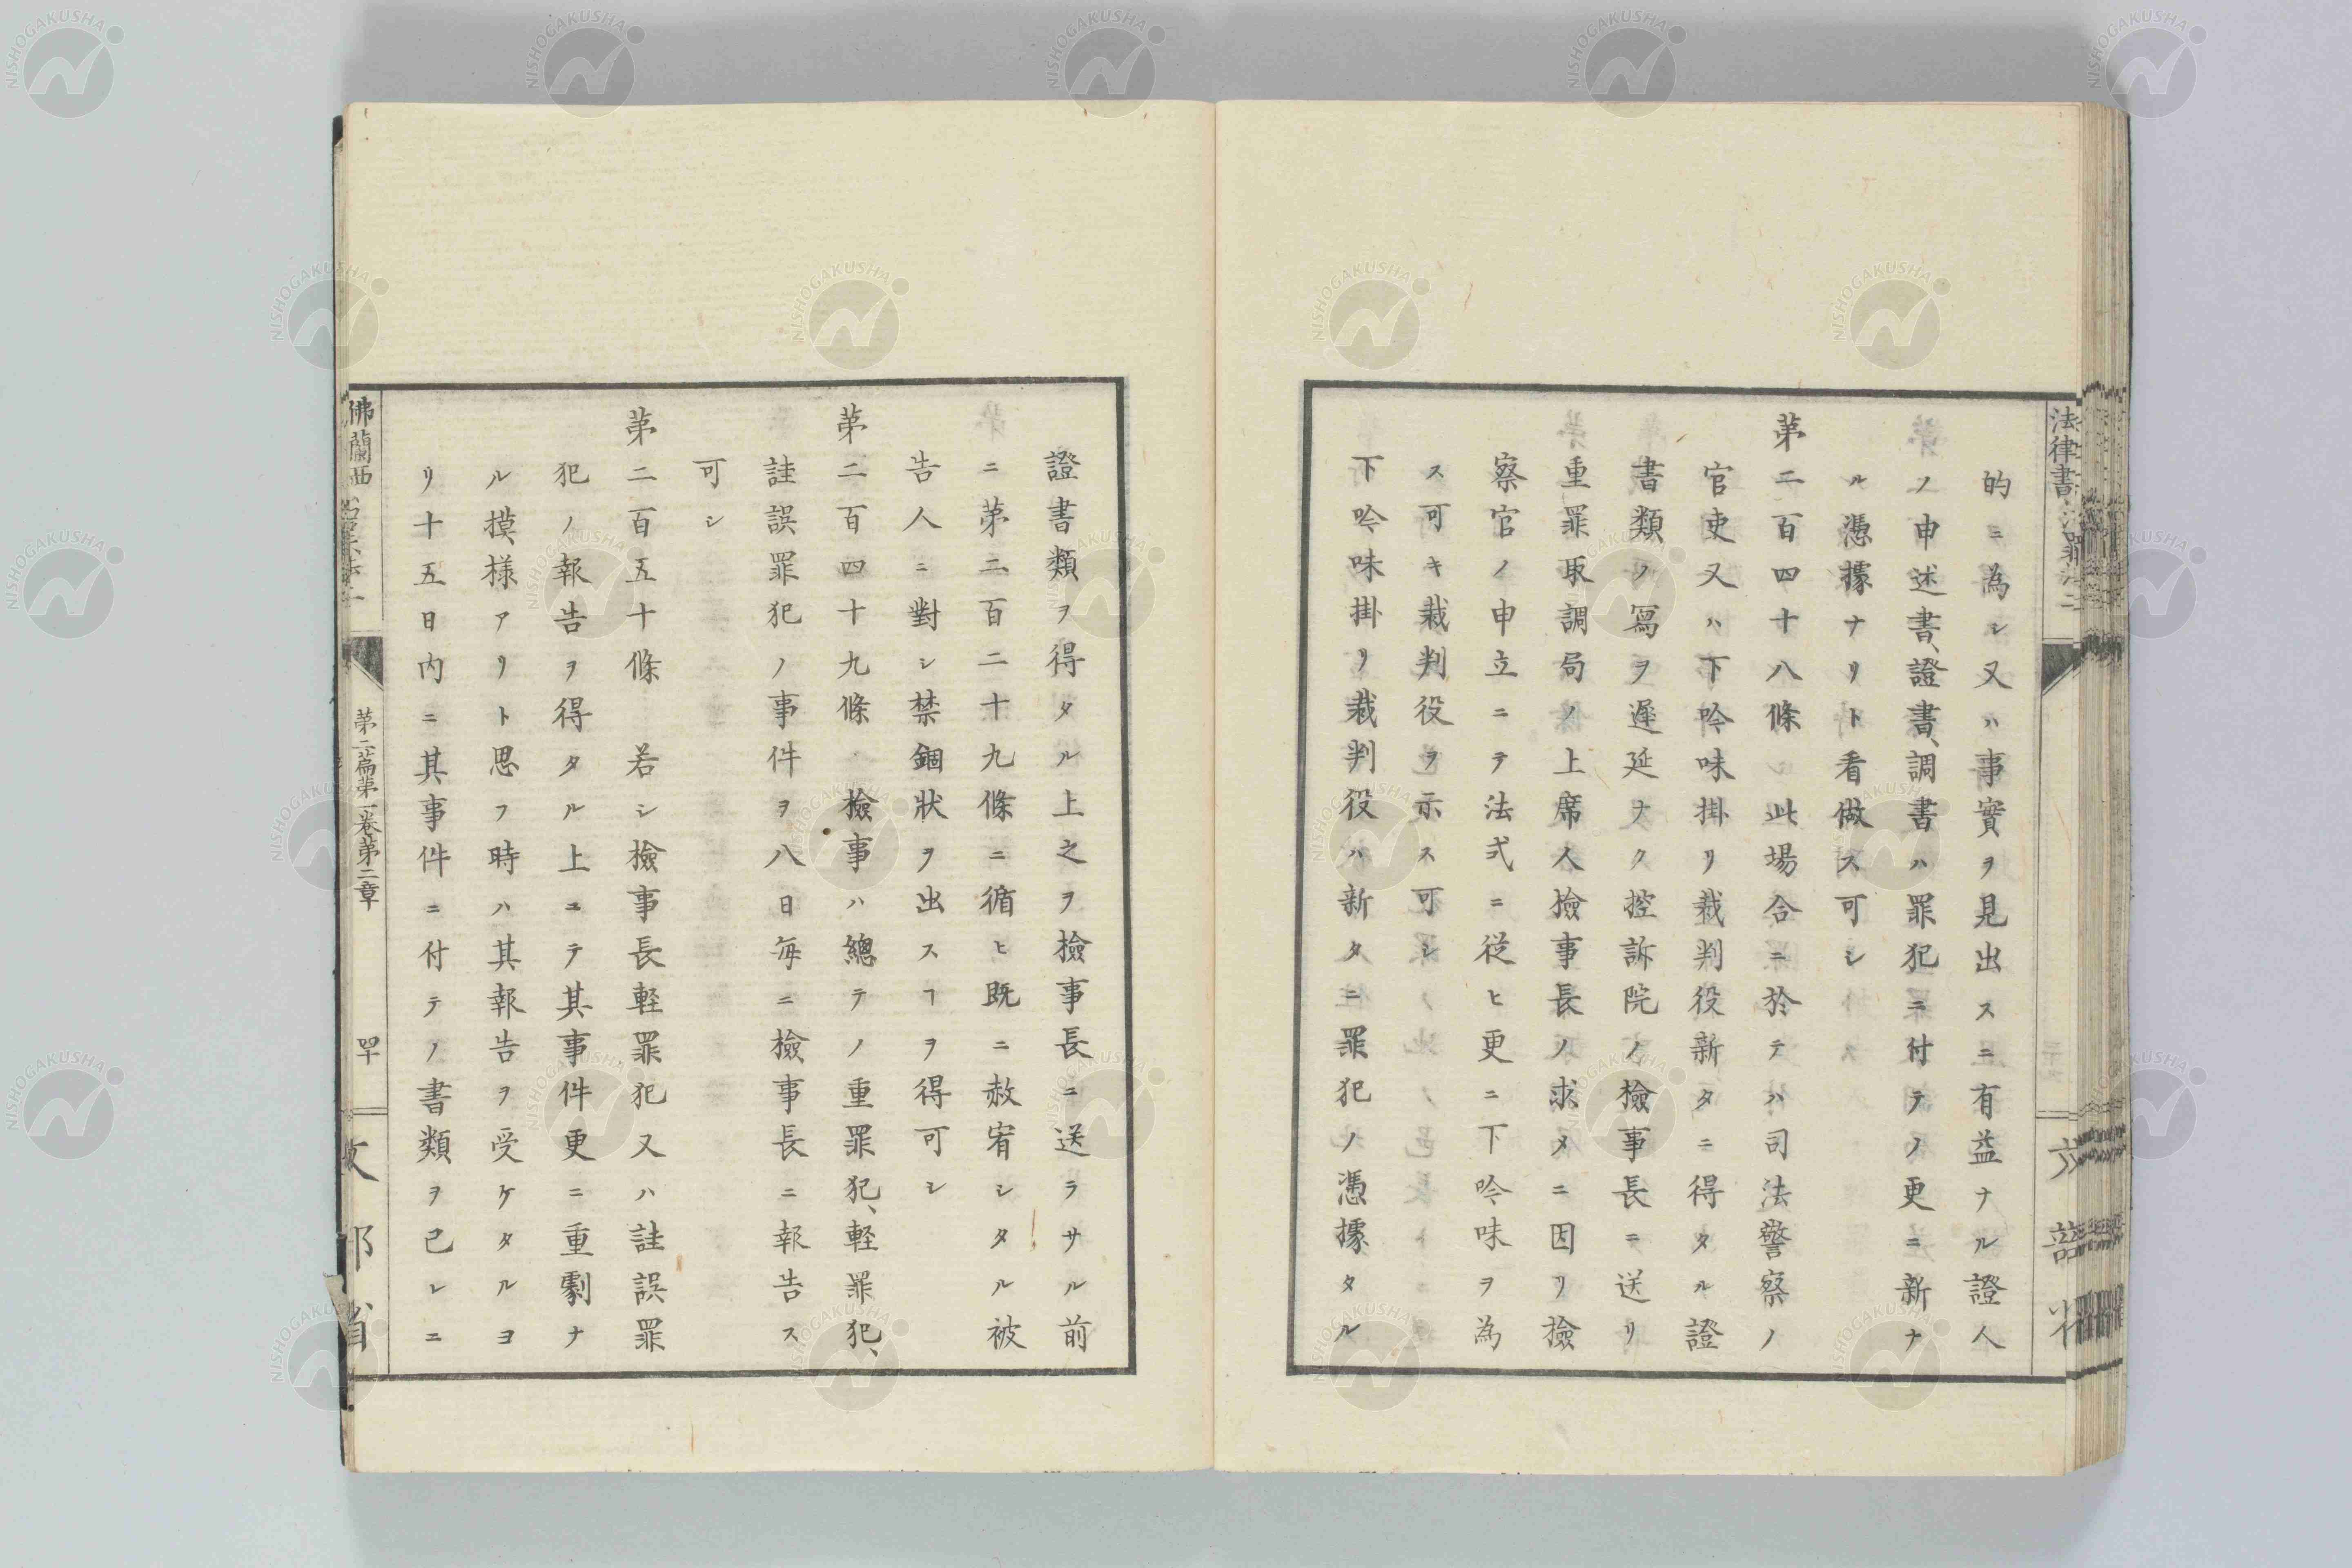 法律書
的ニ為シ又ハ事實ヲ見出スニ有益ナル證人
ノ申述書、證書、調書ハ罪犯ニ付テノ更ニ新ナ
ル憑據ナリト看做ス可シ
第二百四十八條 此場合ニ於テハ司法警察ノ
官吏又ハ下吟味掛リ裁判役新タニ得タル證
書類ノ寫ヲ遲延ナク控訴院ノ檢事長ニ送リ
重罪取調局ノ上席人檢事長ノ求メニ因リ檢
察官ノ申立ニテ法式ニ從ヒ更ニ下吟味ヲ為
ス可キ裁判役ヲ示ス可シ
下吟味掛リ裁判役ハ新タニ罪犯ノ憑據タル
證書類ヲ得タル上之ヲ檢事長ニ送ラサル前
ニ第二百二十九條ニ循ヒ既ニ赦宥シタル被
告人ニ對シ禁錮狀ヲ出スヿヲ得可シ
第二百四十九條 檢事ハ總テノ重罪犯、輕罪犯、
註誤罪犯ノ事件ヲ八日每ニ檢事長ニ報告ス
可シ
第二百五十條 若シ檢事長軽罪犯又ハ註誤罪
犯ノ報告ヲ得タル上ニテ其事件更ニ重劇ナ
ル摸樣アリト思フ時ハ其報告ヲ受ケタルヨ
リ十五日內ニ其事件ニ付テノ書類ヲ已レニ
佛蘭西
第二篇第一卷第二章
罕
文部省
NISHOGAKUSHA